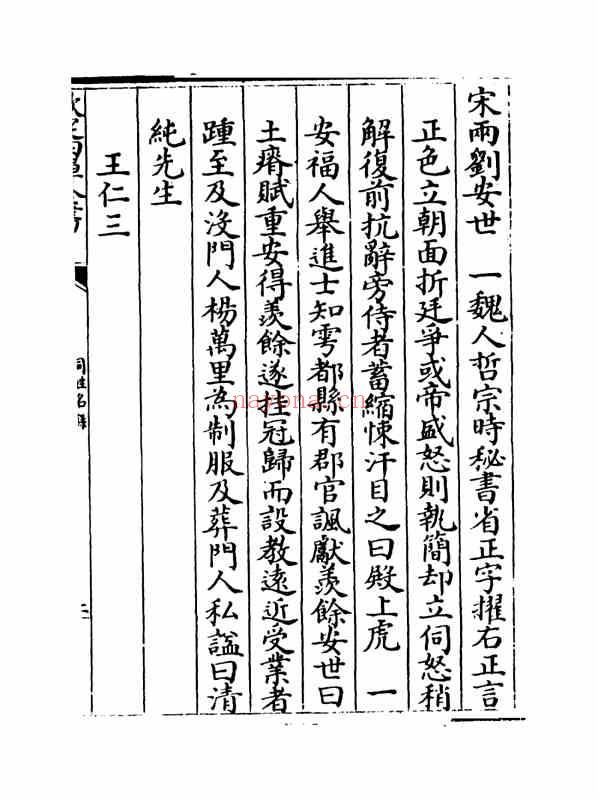 宋兩劉安世　一魏人哲宗時秘書省正字擢右正言
正色立朝面折廷爭或帝盛怒則執簡却立伺怒稍
解復前抗辭旁侍者蓄縮悚汗目之曰殿上虎　一
安福人舉進士知雩都縣有郡官諷獻羨餘安世曰
土瘠賦重安得羨餘遂挂冠歸而設教遠近受業者
踵至及沒門人楊萬里為制服及葬門人私諡曰清
純先生
王仁三
欽定四庫全書
同姓名錄
nayona.cn